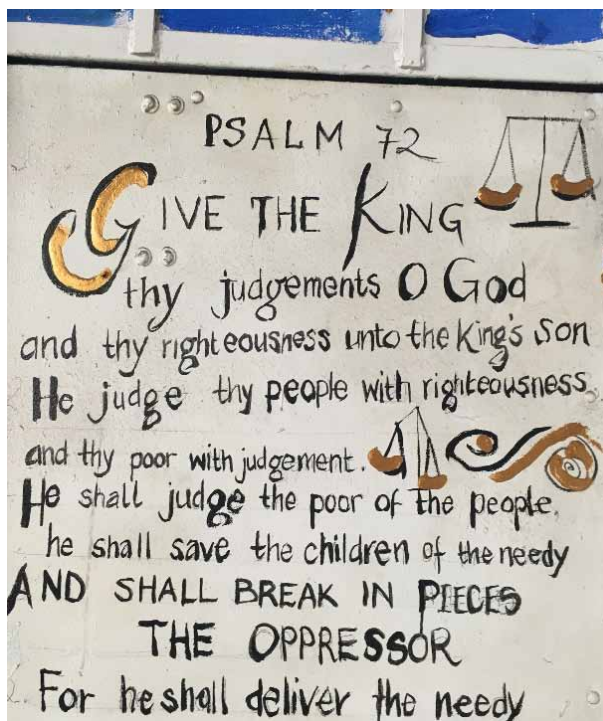 PSALM 72
GIVE THE KING
thy judgements O God
and thy righteousness unto the King's son
He judge thy people with righteousness
and thy poor with judgement.
He shall judge the poor of the people.
he shall save the children of the needy
AND SHALL BREAK IN PIECES
THE OPPRESSOR
For he shall deliver the needy